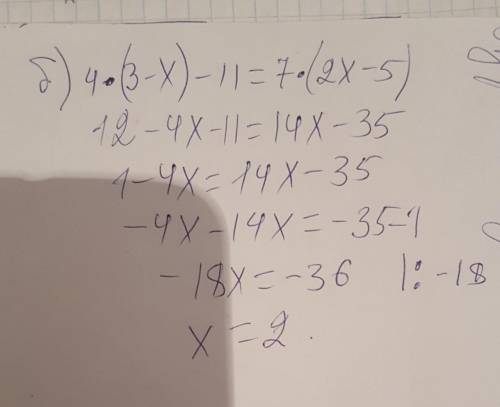 б) 4•(3-x)-11=7•(2x-5)
12-4x-11=14x-35
1-4x=14x-35
-4x-14x=-35-1
-18x=-36 |:-18
x=2.